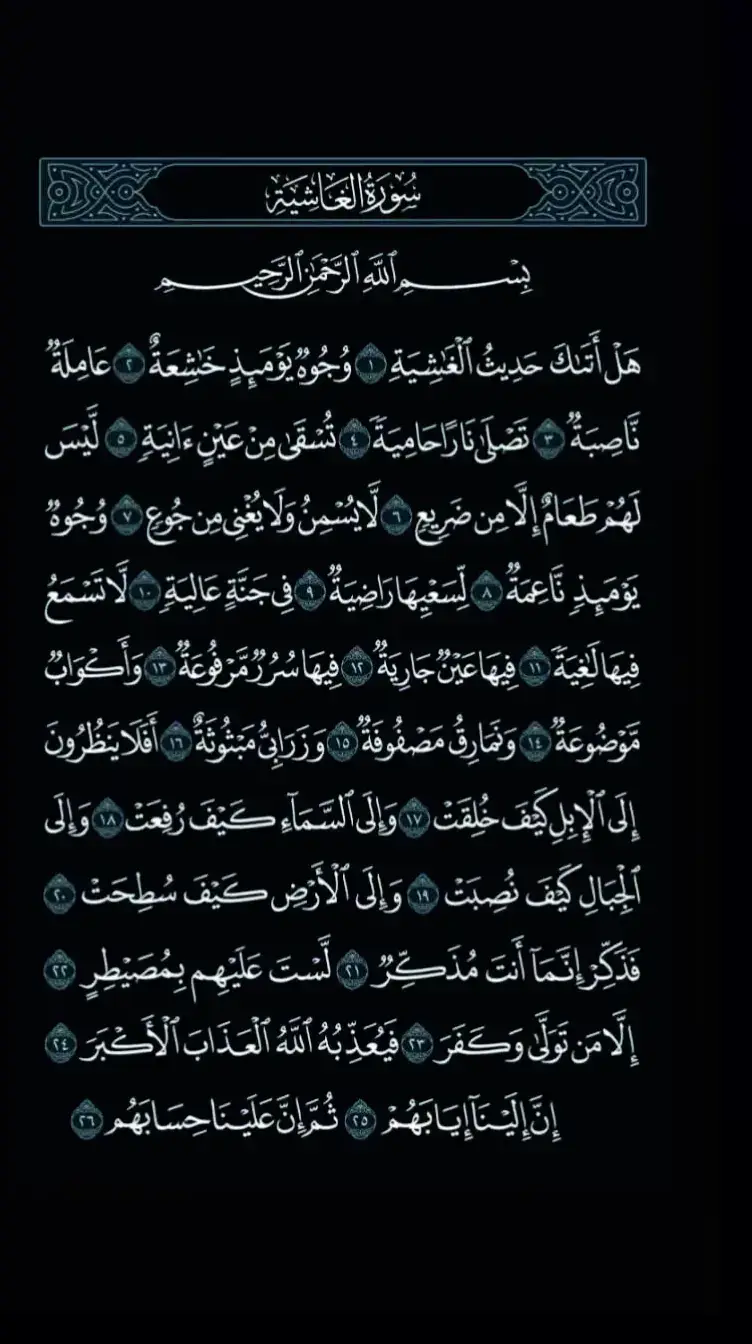 سُورَةُ الْغَاشِيَةِ
بِسْمِ ٱللَّهِ ٱلرَّحْمَٰنِ ٱلرَّحِيمِ
هَلْ أَتَىٰكَ حَدِيثُ ٱلْغَٰشِيَةِ ١ وُجُوهٌ يَوْمَئِذٍ خَٰشِعَةٌ ٢ عَامِلَةٌ
نَّاصِبَةٌ ٣ تَصْلَىٰ نَارًا حَامِيَةً ٤ تُسْقَىٰ مِنْ عَيْنٍ ءَانِيَةٍ ٥ لَّيْسَ
لَهُمْ طَعَامٌ إِلَّا مِن ضَرِيعٍ ٦ لَّا يُسْمِنُ وَلَا يُغْنِى مِن جُوعٍ ٧ وُجُوهٌ
يَوْمَئِذٍ نَّاعِمَةٌ ٨ لِّسَعْيِهَا رَاضِيَةٌ ٩ فِى جَنَّةٍ عَالِيَةٍ ١٠ لَّا تَسْمَعُ
فِيهَا لَٰغِيَةً ١١ فِيهَا عَيْنٌ جَارِيَةٌ ١٢ فِيهَا سُرُرٌ مَّرْفُوعَةٌ ١٣ وَأَكْوَابٌ
مَّوْضُوعَةٌ ١٤ وَنَمَارِقُ مَصْفُوفَةٌ ١٥ وَزَرَابِىُّ مَبْثُوثَةٌ ١٦ أَفَلَا يَنظُرُونَ
إِلَى ٱلْإِبِلِ كَيْفَ خُلِقَتْ ١٧ وَإِلَى ٱلسَّمَآءِ كَيْفَ رُفِعَتْ ١٨ وَإِلَى
ٱلْجِبَالِ كَيْفَ نُصِبَتْ ١٩ وَإِلَى ٱلْأَرْضِ كَيْفَ سُطِحَتْ ٢٠
فَذَكِّرْ إِنَّمَآ أَنتَ مُذَكِّرٌ ٢١ لَّسْتَ عَلَيْهِم بِمُصَيْطِرٍ ٢٢
إِلَّا مَن تَوَلَّىٰ وَكَفَرَ ٢٣ فَيُعَذِّبُهُ ٱللَّهُ ٱلْعَذَابَ ٱلْأَكْبَرَ ٢٤
إِنَّ إِلَيْنَآ إِيَابَهُمْ ٢٥ ثُمَّ إِنَّ عَلَيْنَا حِسَابَهُم ٢٦